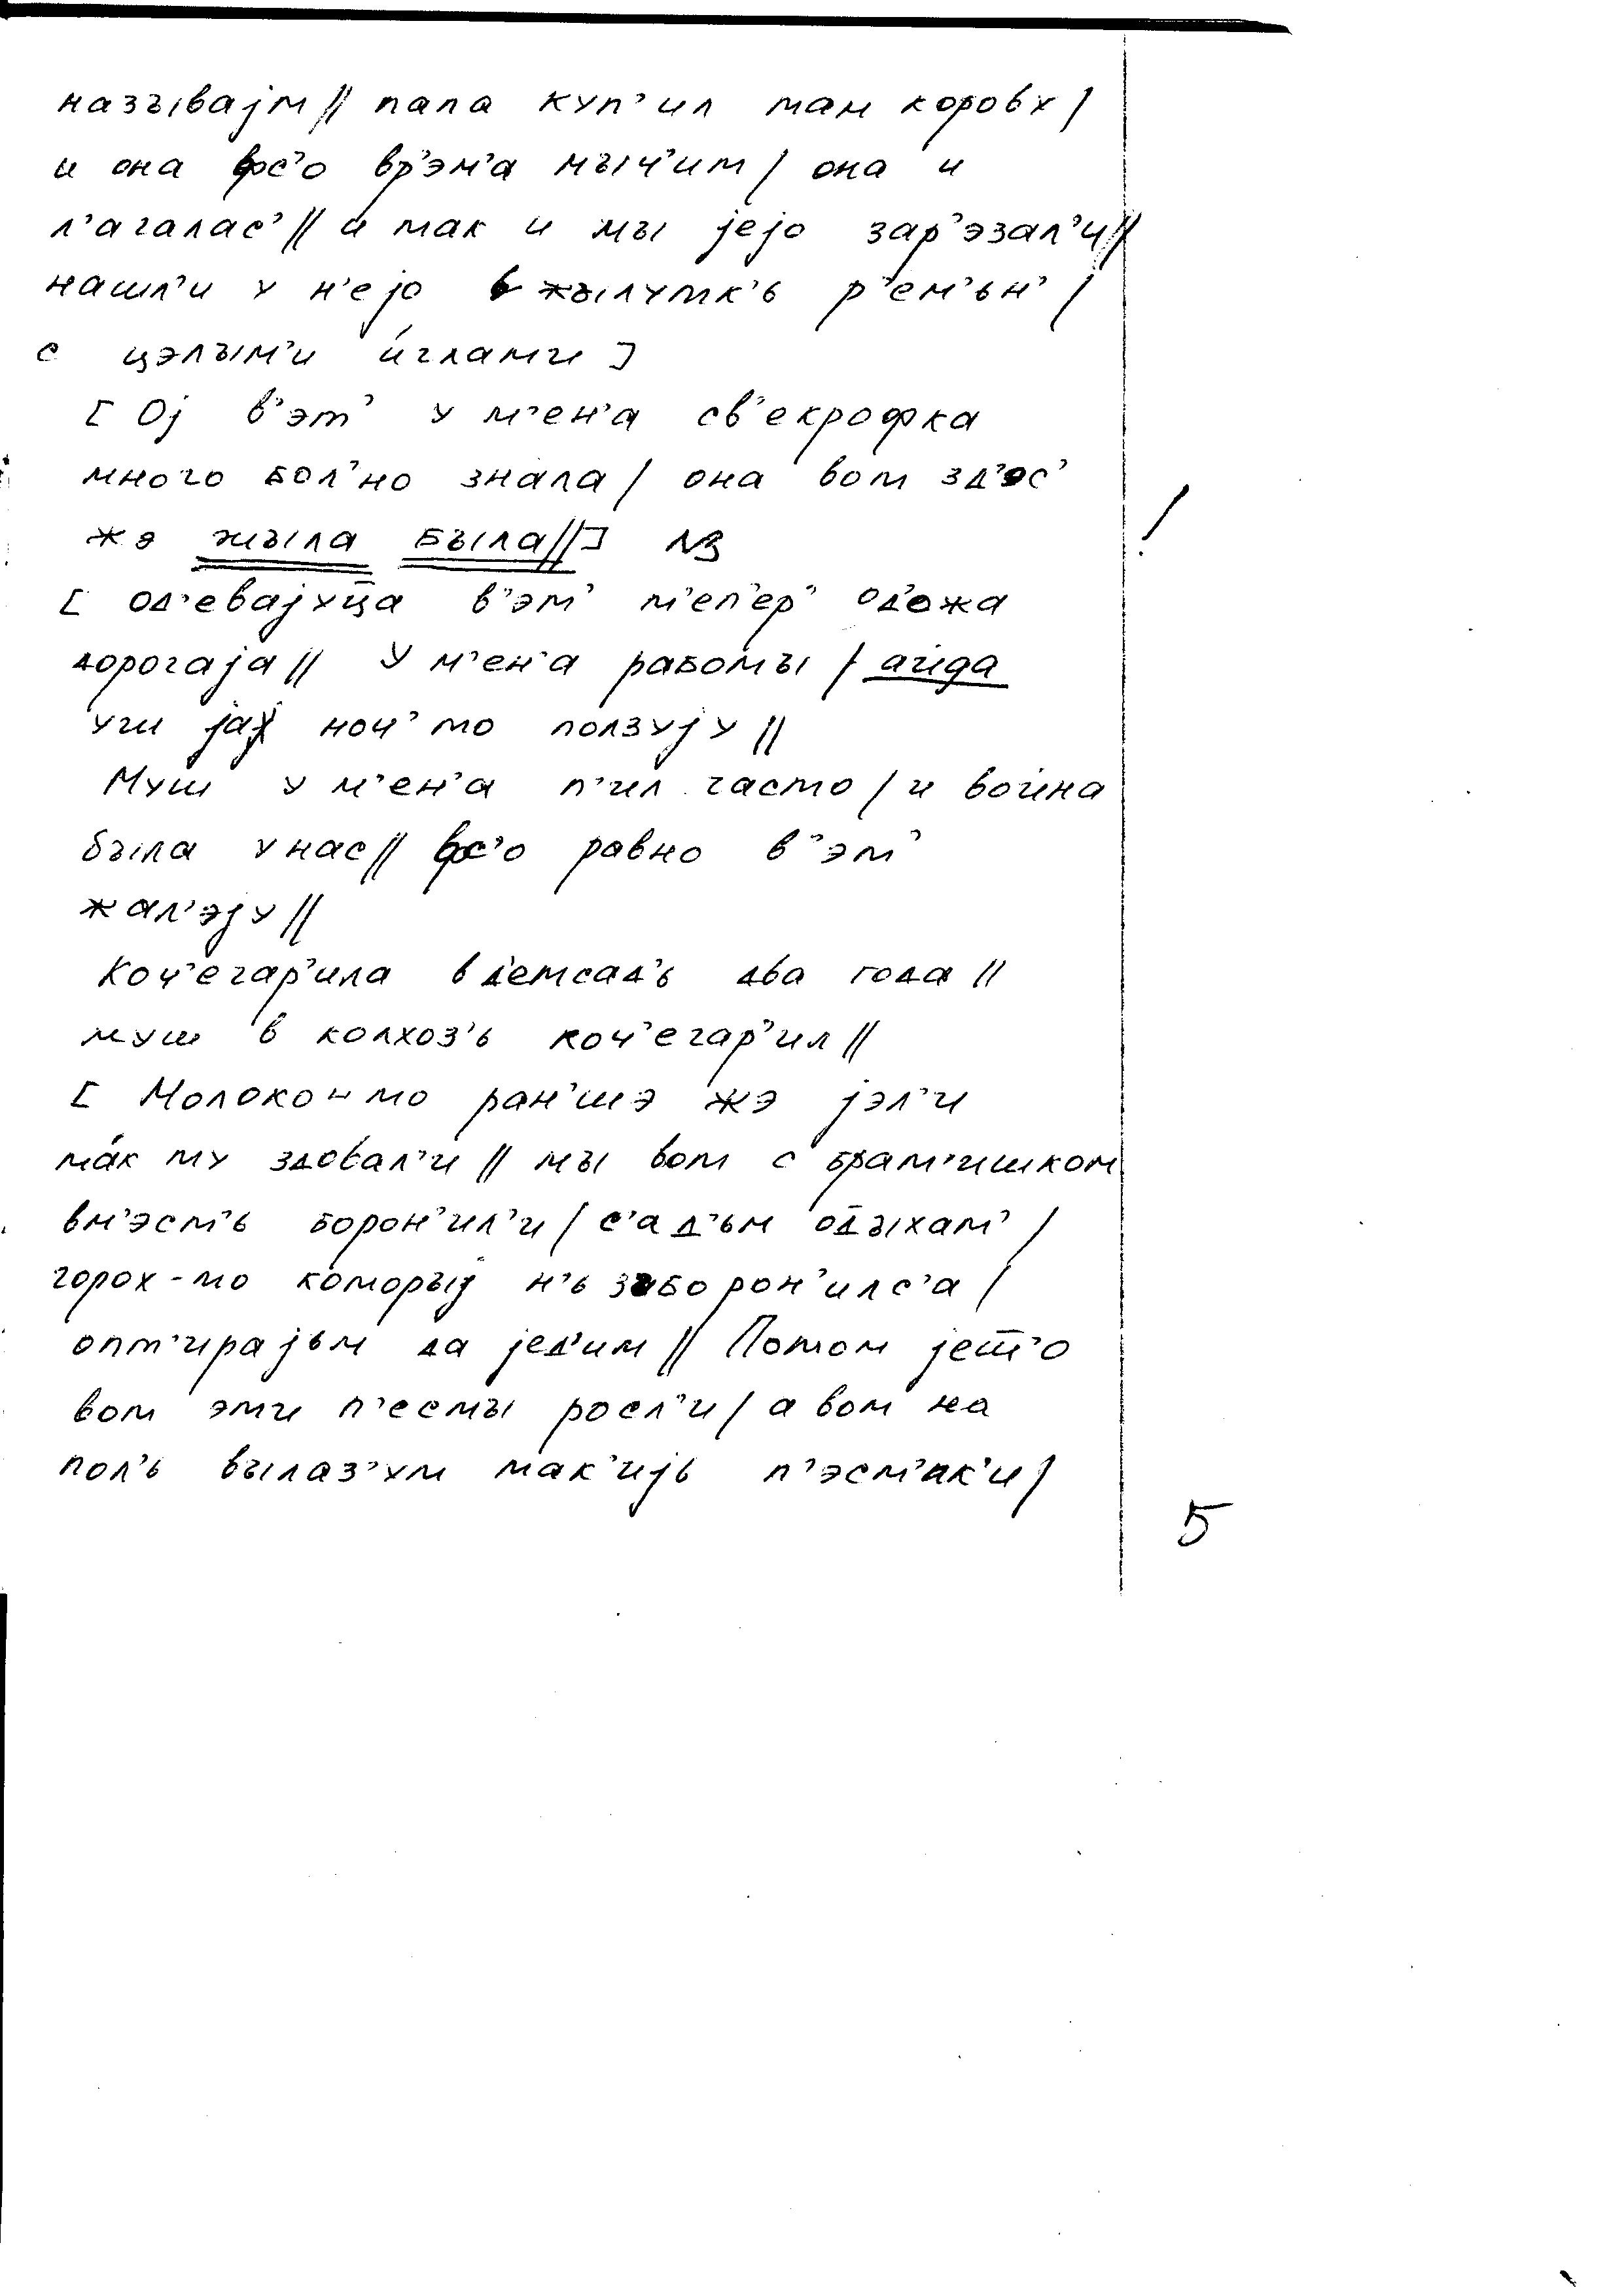 называјт // папа куп’ил там коровУ /
и она фс’о вр’эм’а мыч’ит / она и
л’агалас’ // а так и мы јејо зар’эзал’и //
нашл’и у н’ејо в жылутк’ь р’ем’ьн’ /
с цэлым’и иглами ]
[ Ој в’эт’ у м’ен’а св’екрофка
много бол’но знала / она вот зд’эс’
жэ жыла была // ] №3
!
[ од’евајуца в’эт’ т’еп’ер’ од’ожа
дорогаја // У м’ен’а работы / айда
уги ја ноч’ то ползују //
Муш у м’ен’а п’ил часто / и война
была у нас // фс’о равно в’эт’
жал’эју //
Коч’егар’ила в д’етсад’ь два года //
муш в колхоз’ь коч’егар’ил //
[ Молоко-то ран’шэ жэ јэл’и
так ту здовал’и // мы вот с брат’ишком
вм’эст’ь борон’ил’и / с’ад’ьм одыхат’ /
горох-то которыј н’ь заборон’илс’а /
опт’ирајьм да јед’им // Потом јешт’о
вот эти п’есты росл’и / а вот на
пол’ь вылаз’ут так’ијь п’эст’ик’и /
5